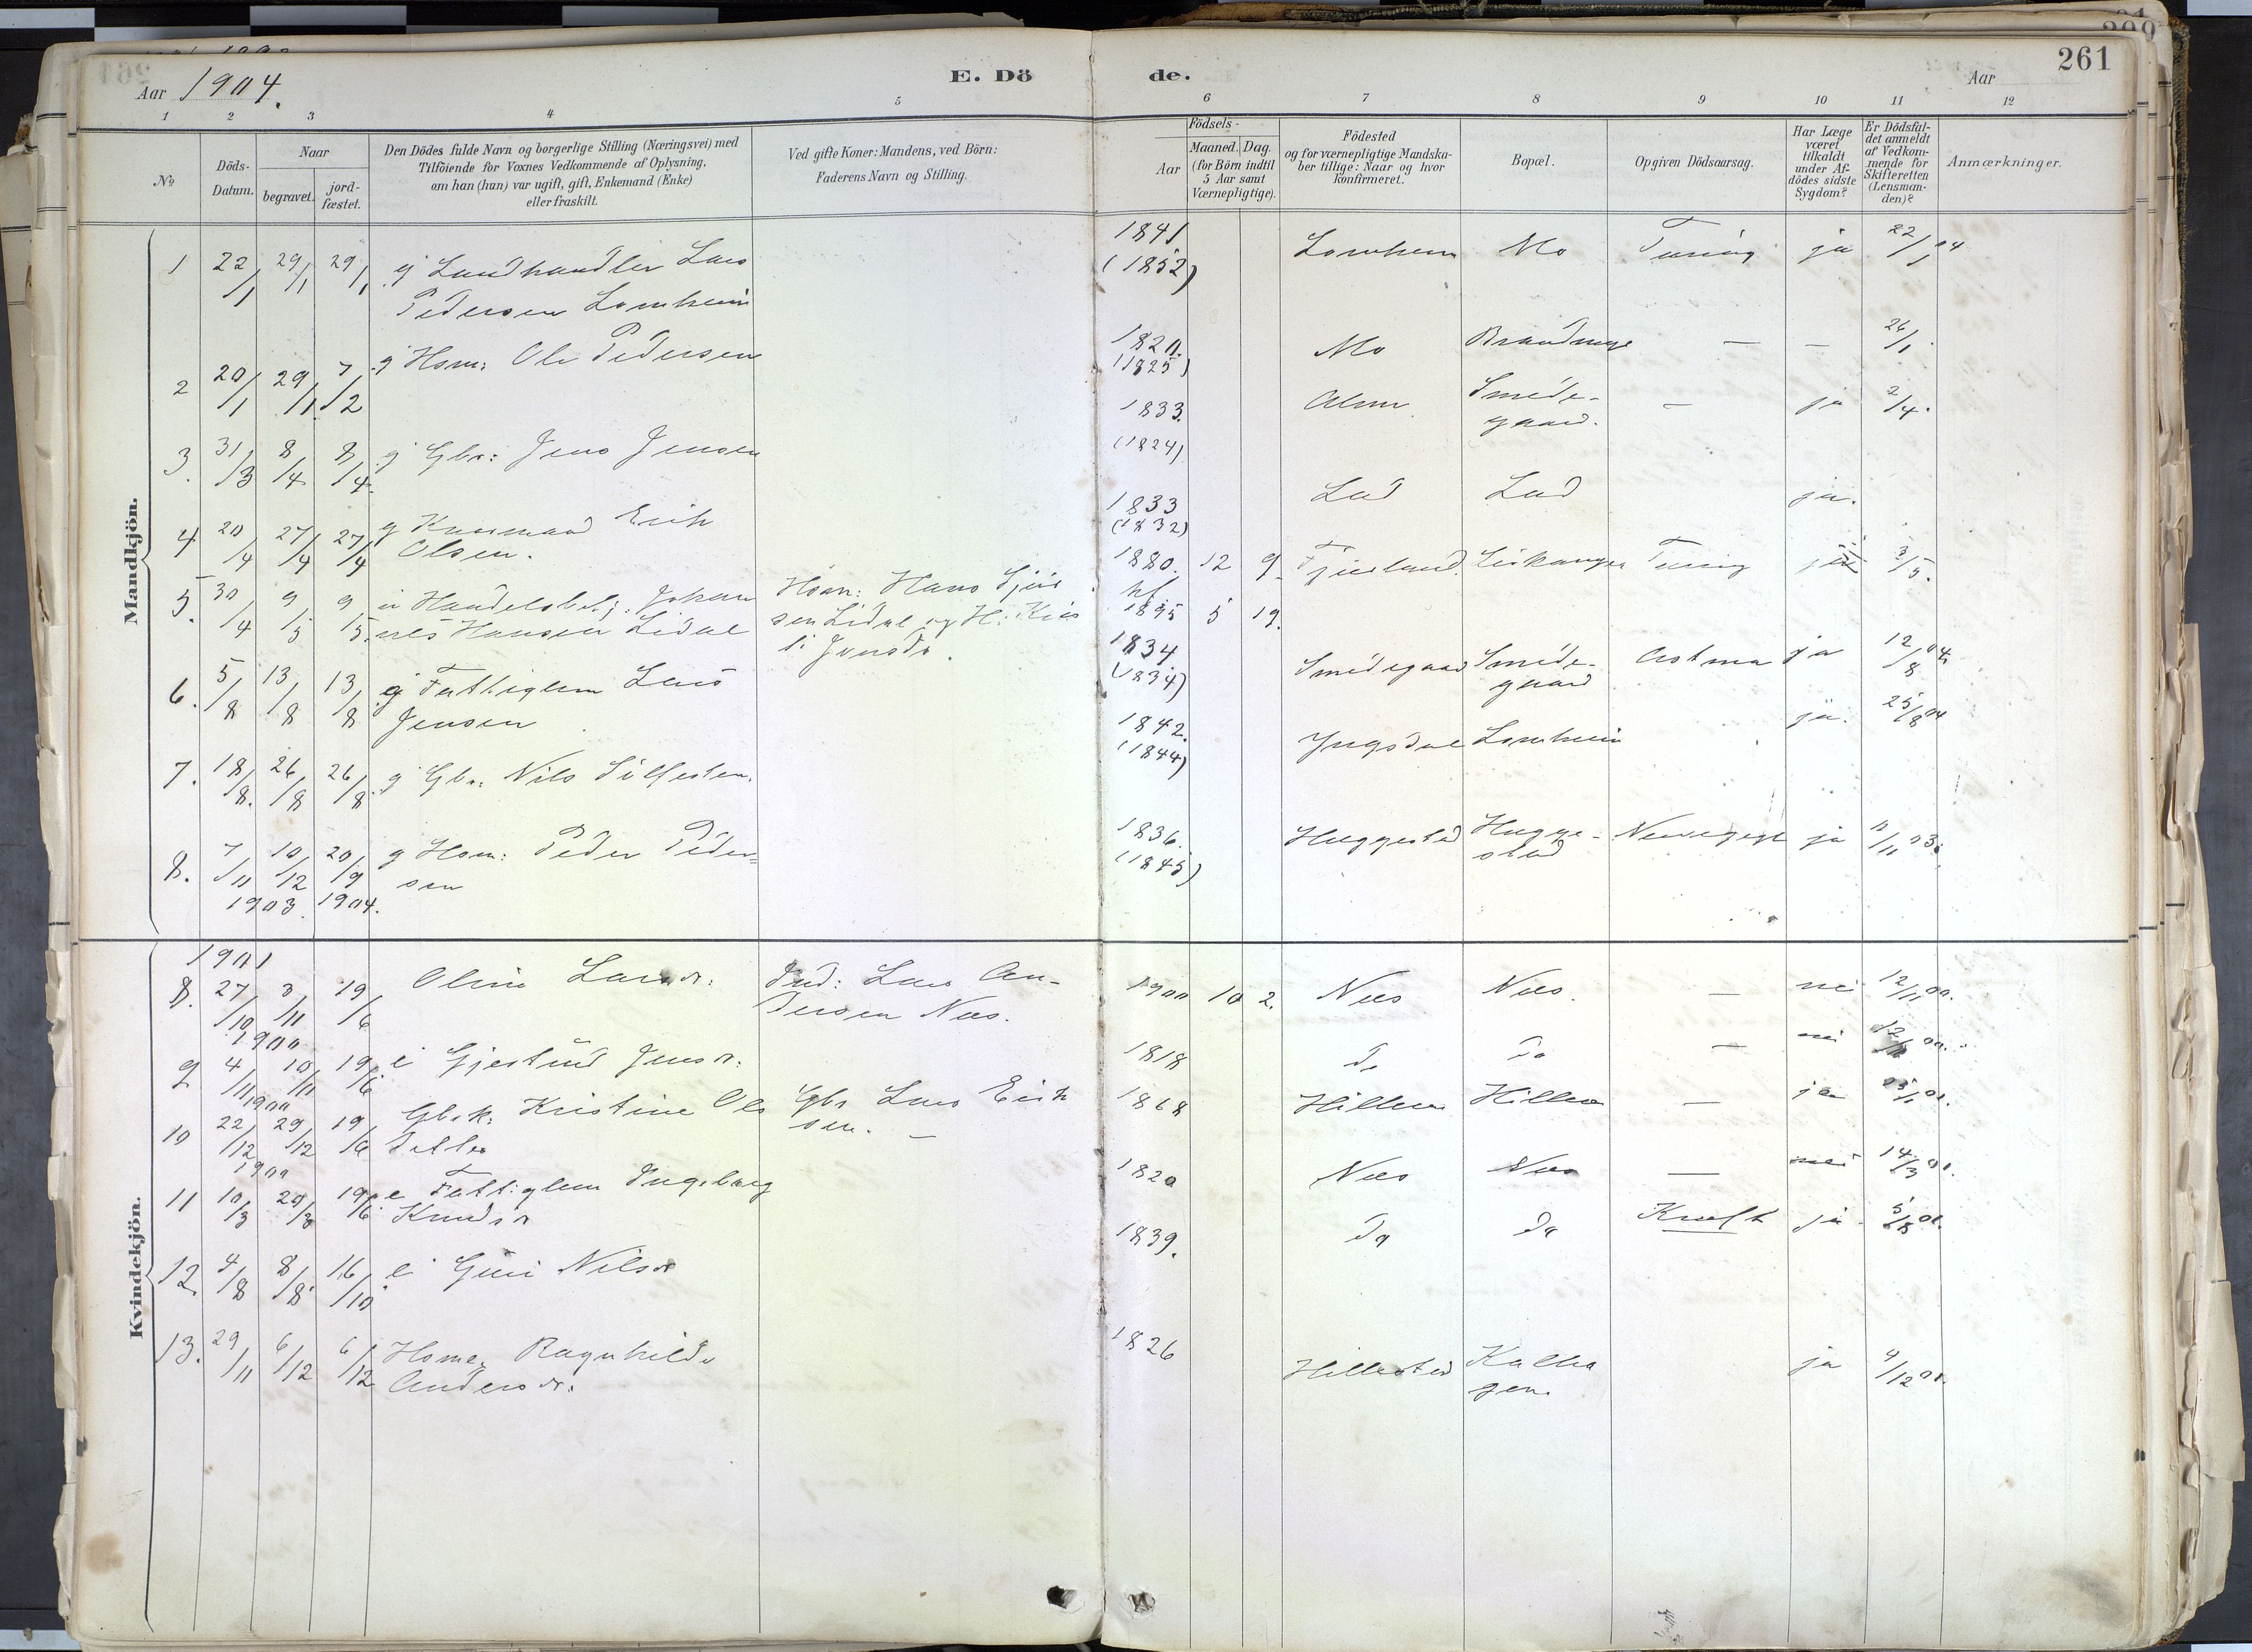 261
Aar 1904.
E. Dö de.
Aar
1 2 3 4 5 6 7 8 9 10 11 12
No
Döds-
Datum.
Naar
begravet.
jord-
fæstet.
Den Dödes fulde Navn og borgerlige Stilling (Næringsvei) med
Tilföiende for Voxnes Vedkommende af Oplysning,
om han (hun) var ugift, gift, Enkemand (Enke)
eller fraskilt.
Ved gifte Koner: Mandens, ved Börn:
Faderens Navn og Stilling.
Födsels-
Aar
Maaned. Dag.
(for Börn indtil
5 Aar samt
Værnepligtige).
Födested
og for værnepligtige Mandska-
ber tillige: Naar og hvor
konfirmeret.
Bopæl.
Opgiven Dödsaarsag.
Har Læge
været
tilkaldt
under Af-
dödes sidste
Sygdom?
Er Dödsfal-
det anmeldt
af Vedkom-
mende for
Skifteretten
(Lensman-
den)?
Anmærkninger.
Mandkjön.
1 22/1 29/1 29/1 g Landhandler Lars 1841 Lomheim Mo Tæring ja 22/1 04
Pedersen Lomheim (1852)
2 20/1 29/1 7/2 g Hsm: Ole Pedersen 1820. Mo — — 26/1
(1825)
3. 31/3 8/4 8/4. g Gbr: Jens Jensen 1833. Smede- — ja 2/4.
gaard.
(1824)
4 20/4 27/4 27/4 g Erik 1833 ja.
Olsen. (1832)
5. 30/4 9/5 9/5. u Handelsbetj. Johan Hsm: Hans 1880. 12 9. Fjærland. Leikanger Tæring 3/5.
nes Hansen Lidal sen Lidal og H. 1895 5 19.
Jonsdr.
6. 5/8 13/8 13/8 g Fattiglem Lars 1834 Smedegaard Smede- Astma ja 12/8 04.
Jensen (1834) gaard
7. 18/8. 26/8 26/8. g Gbr: Nils 1842. Yngsdal Lomheim ja. 25/8 04
(1844)
8. 7/11 10/12 20/9 g Hsm: Peder Peder= 1836. Huggestad Hugge- ja 11/11 03.
1903. 1904. sen (1845) stad
Kvindekjön.
1901
8. 27/10 3/11 19/6 Oline Larsdr: Ind: Lars An- 1900 10 2. Nees Nees. — nei 12/11 00.
1900 dersen Nees.
9 4/11 10/11 19/6 e Gjertrud Jensdr: 1818 do do — nei 12/11 00.
1900
10 22/12 29/12 19/6 Gbrk: Kristine Ols Gbr Lars Erik 1868 Hillern Hillern — ja
1900 datter sen. —
11 10/3 20/3 19/6 e Fattiglem Ingeborg 1820 Nees Nees — nei 14/3 01.
Knudsdr
12. 4/8 8/8 16/10 e Guri Nilsdr 1839. do do Kræft ja 5/8 01.
13. 29/11 6/12 6/12 Ragnhilde 1826 Hillestad Kalha ja 4/12 01.
Andersdr. gen.